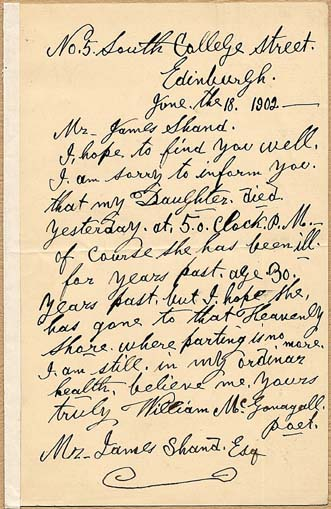 No. 5. South College Street.
Edinburgh.
June. the 18. 1902.—
Mr— James Shand.
I, hope. to find you well.
I. am sorry to inform you.
that my Daughter. died
yesterday. at. 5. o. Clock. P. M.—
of Course she has been ill.
for years past. age. 30.
years past. but I. hope she,
has gone to that Heavenly
shore. where parting is no. more.
I. am still. in my ordinar
health. believe me. yours
truly William Mc. Gonagall.
poet.
Mr— James Shand. Esq